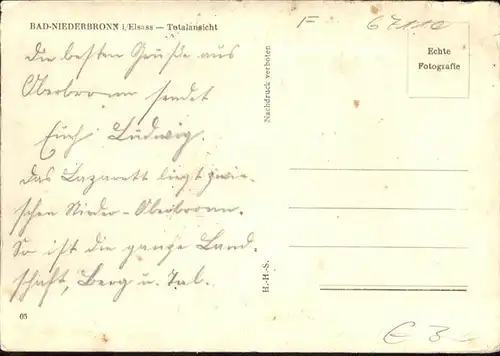 BAD-NIEDERBRONN i/Elsass — Totalansicht
Die besten Grüße aus
Oberbronn sendet
Euch Ludwig.
Das Lazarett liegt zwie-
schen Nieder-Oberbronn.
So ist die ganze Land-
schaft, Berg u. Tal.
05
Nachdruck verboten
H.-H.-S.
F
Echte
Fotografie
€ 3